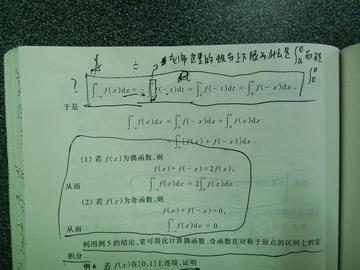 老师 这里的 极分上下限为什么是 ∫ₐ⁰ 而非
∫₀ᵃ
?
∫₋ₐ⁰ f(x)dx = -∫ₐ⁰ f(-t)dt = ∫₀ᵃ f(-t)dt = ∫₀ᵃ f(-x)dx .
于是
∫₋ₐᵃ f(x)dx = ∫₀ᵃ f(-x)dx + ∫₀ᵃ f(x)dx
= ∫₀ᵃ [f(x)+f(-x)]dx .
(1) 若 f(x)为偶函数,则
f(x)+f(-x)=2f(x),
从而 ∫₋ₐᵃ f(x)dx = 2∫₀ᵃ f(x)dx .
(2) 若 f(x)为奇函数,则
f(x)+f(-x)=0,
从而 ∫₋ₐᵃ f(x)dx = 0.
利用例 5 的结论,常可简化计算偶函数、奇函数在对称于原点的区间上的定
积分.
例 6 若 f(x)在[0,1]上连续,证明